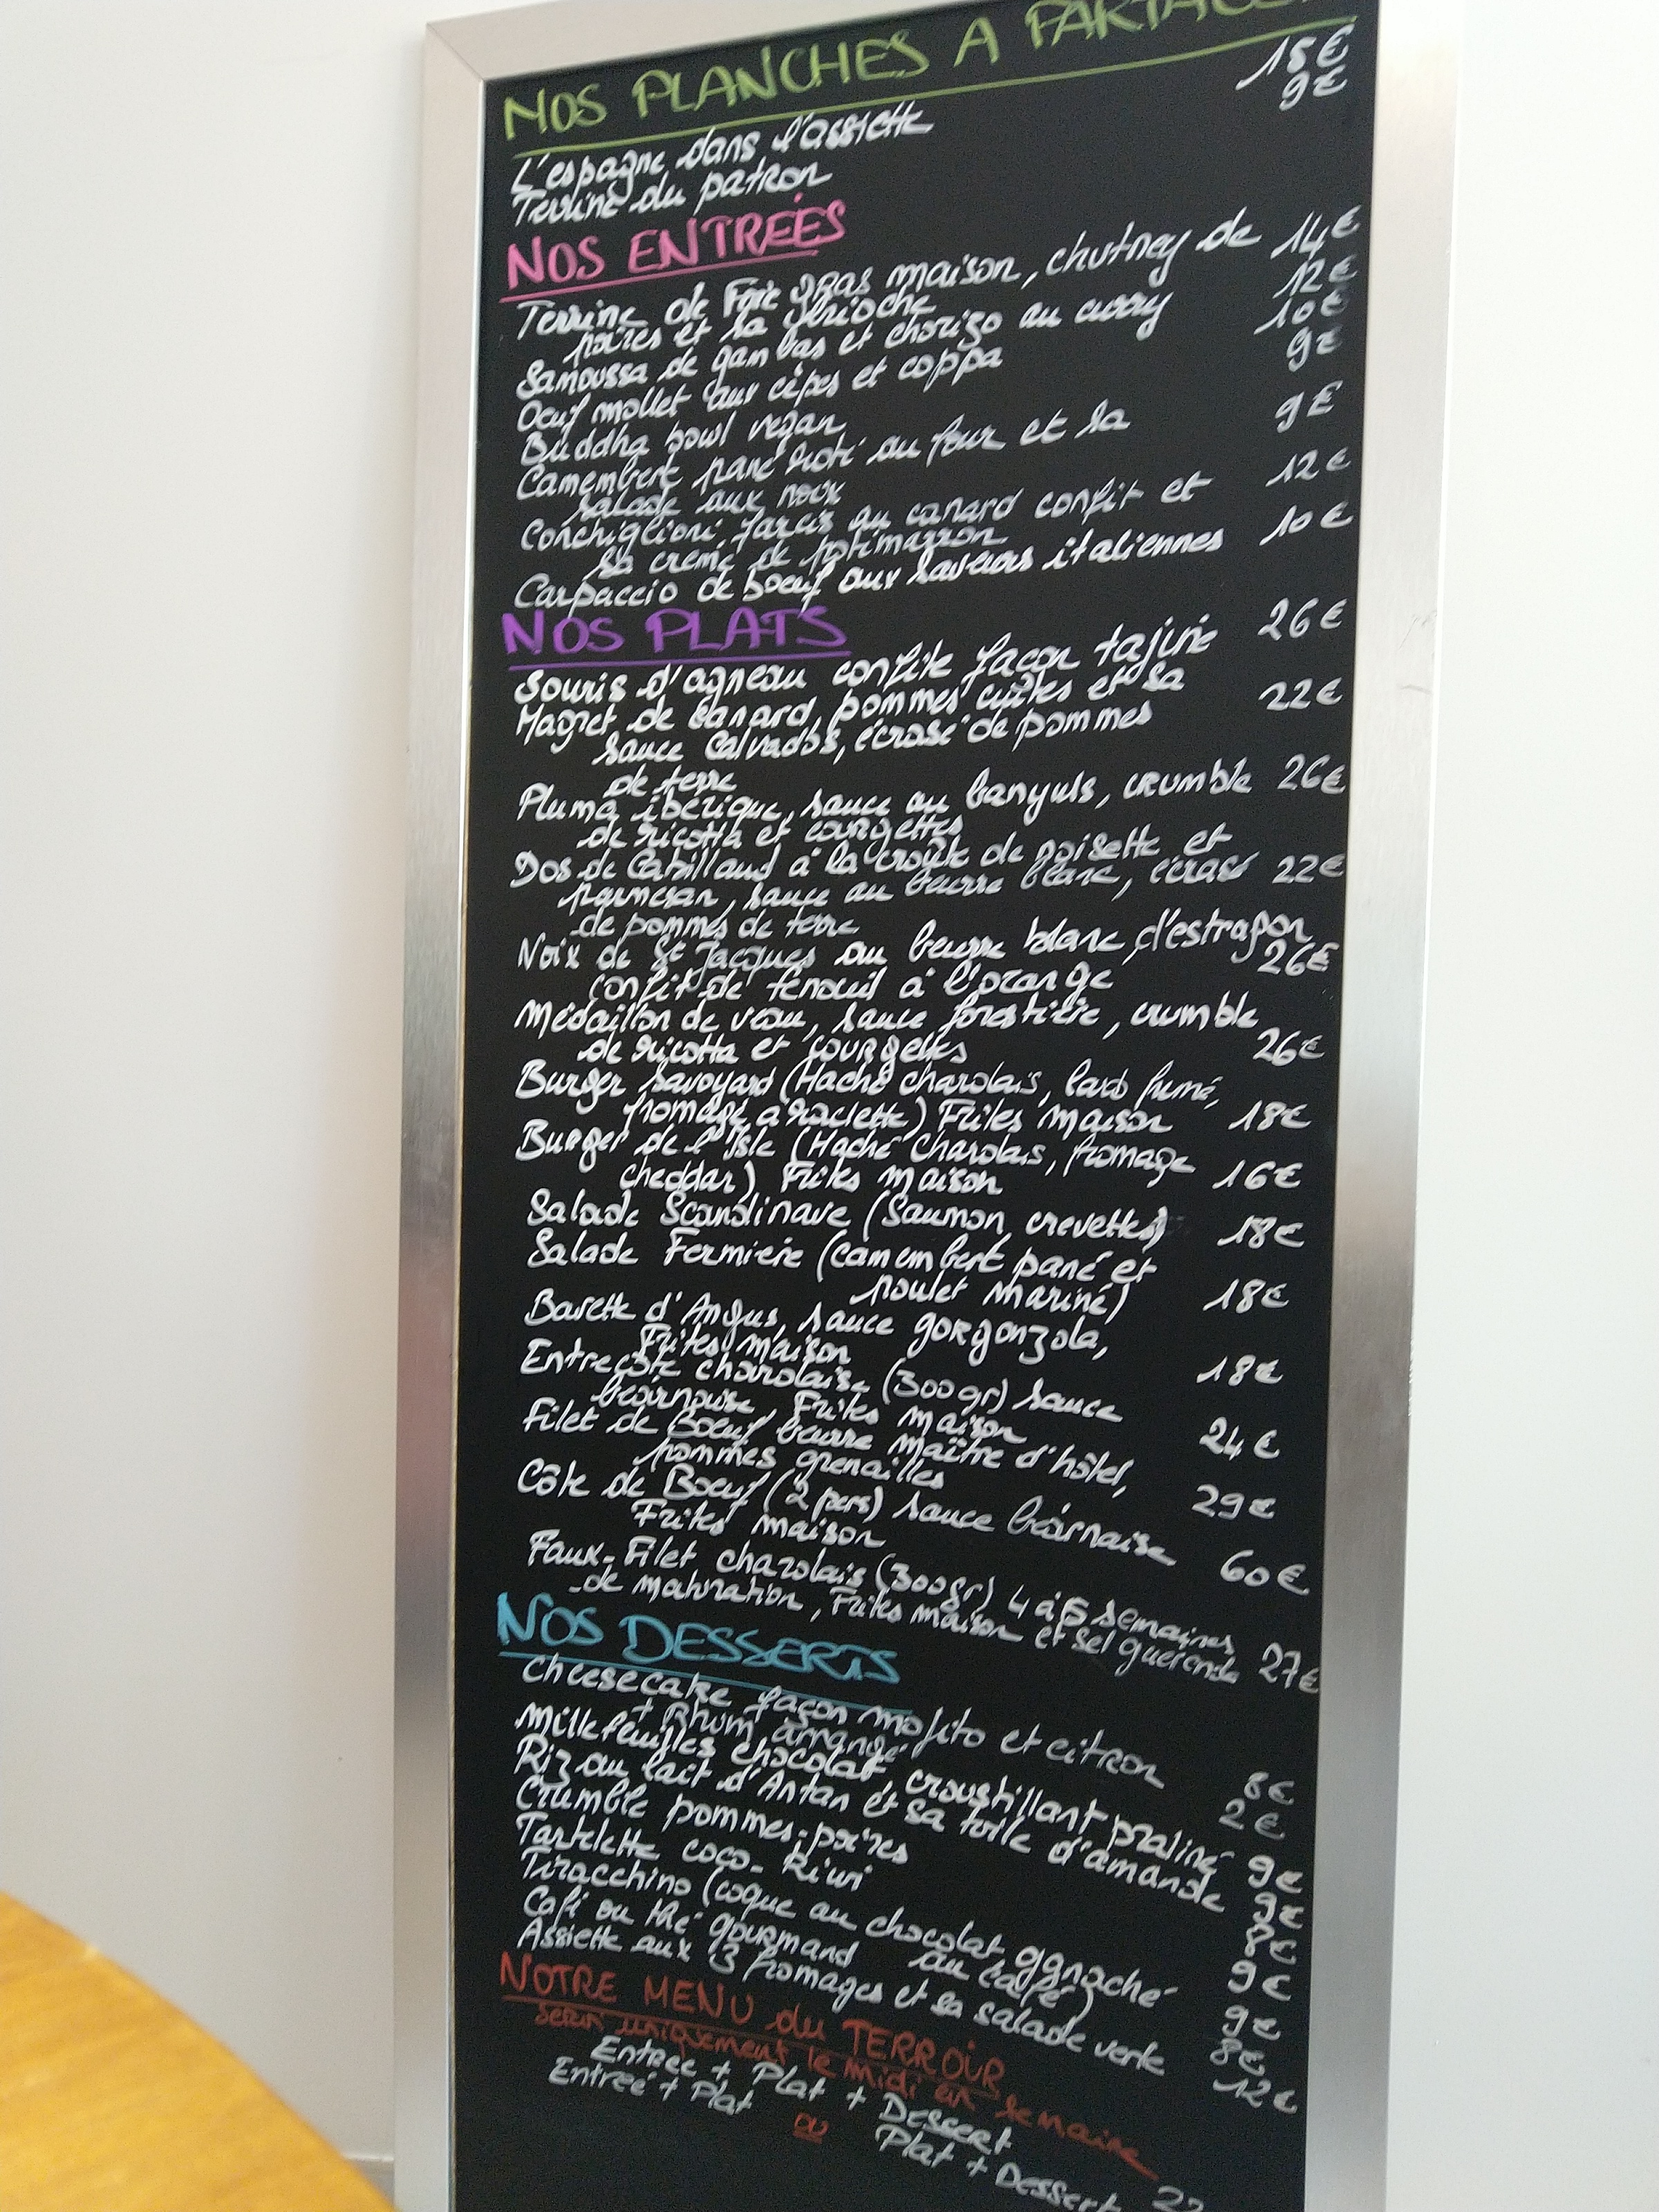 NOS PLANCHES A PARTAGER
L'espagne dans l'assiette 18€
Terrine du patron 9€
NOS ENTRÉES
Terrine de Foie gras maison, chutney de 14€
poires et sa brioche
Samoussa de gambas et chorizo au curry 12€
Oeuf mollet aux cèpes et coppa 10€
Buddha bowl vegan 9€
Camembert pané roti au four et sa 9€
salade aux noix
Conchiglioni farcis au canard confit et 12€
sa creme de potimarron
Carpaccio de boeuf aux saveurs italiennes 10€
NOS PLATS
Souris d'agneau confite façon tajine 26€
Magret de canard, pommes cuites et sa 22€
sauce Calvados, écrasé de pommes
de terre
Pluma ibérique, sauce au banyuls, crumble 26€
de ricotta et courgettes
Dos de Cabillaud à la croûte de noisette et
parmesan, sauce au beurre blanc, écrasé 22€
de pommes de terre
Noix de St Jacques au beurre blanc d'estragon
26€
confit de fenouil à l'orange
Médaillon de veau, sauce forestière, crumble
de ricotta et courgettes 26€
Burger savoyard (Haché charolais, lard fumé,
fromage à raclette) Frites maison 18€
Burger de l'Isle (Haché Charolais, fromage
cheddar) Frites maison 16€
Salade Scandinave (Saumon, crevettes) 18€
Salade Fermière (camembert pané et
poulet mariné) 18€
Bavette d'Angus, sauce gorgonzola,
Frites maison 18€
Entrecôte charolaise (300gr) sauce
béarnaise, Frites maison 24€
Filet de Boeuf beurre maître d'hôtel,
pommes grenailles 29€
Côte de Boeuf (2 pers) sauce béarnaise
Frites maison 60€
Faux-Filet charolais (300gr) 4 à 5 semaines
de maturation, Frites maison et sel guérande 27€
NOS DESSERTS
Cheesecake façon mojito et citron 8€
+ Rhum arrangé 2€
Millefeuilles chocolat croustillant praliné 9€
Riz au lait d'Antan et sa tuile d'amande 9€
Crumble pommes-poires
Tartelette coco-kiwi 9€
Tiracchino (coque au chocolat ganache
au café) 9€
Café ou thé gourmand 8€
Assiette aux 3 fromages et sa salade verte 12€
NOTRE MENU du TERROIR
servi uniquement le midi en semaine
Entrée + Plat + Dessert
Entrée + Plat ou Plat + Dessert